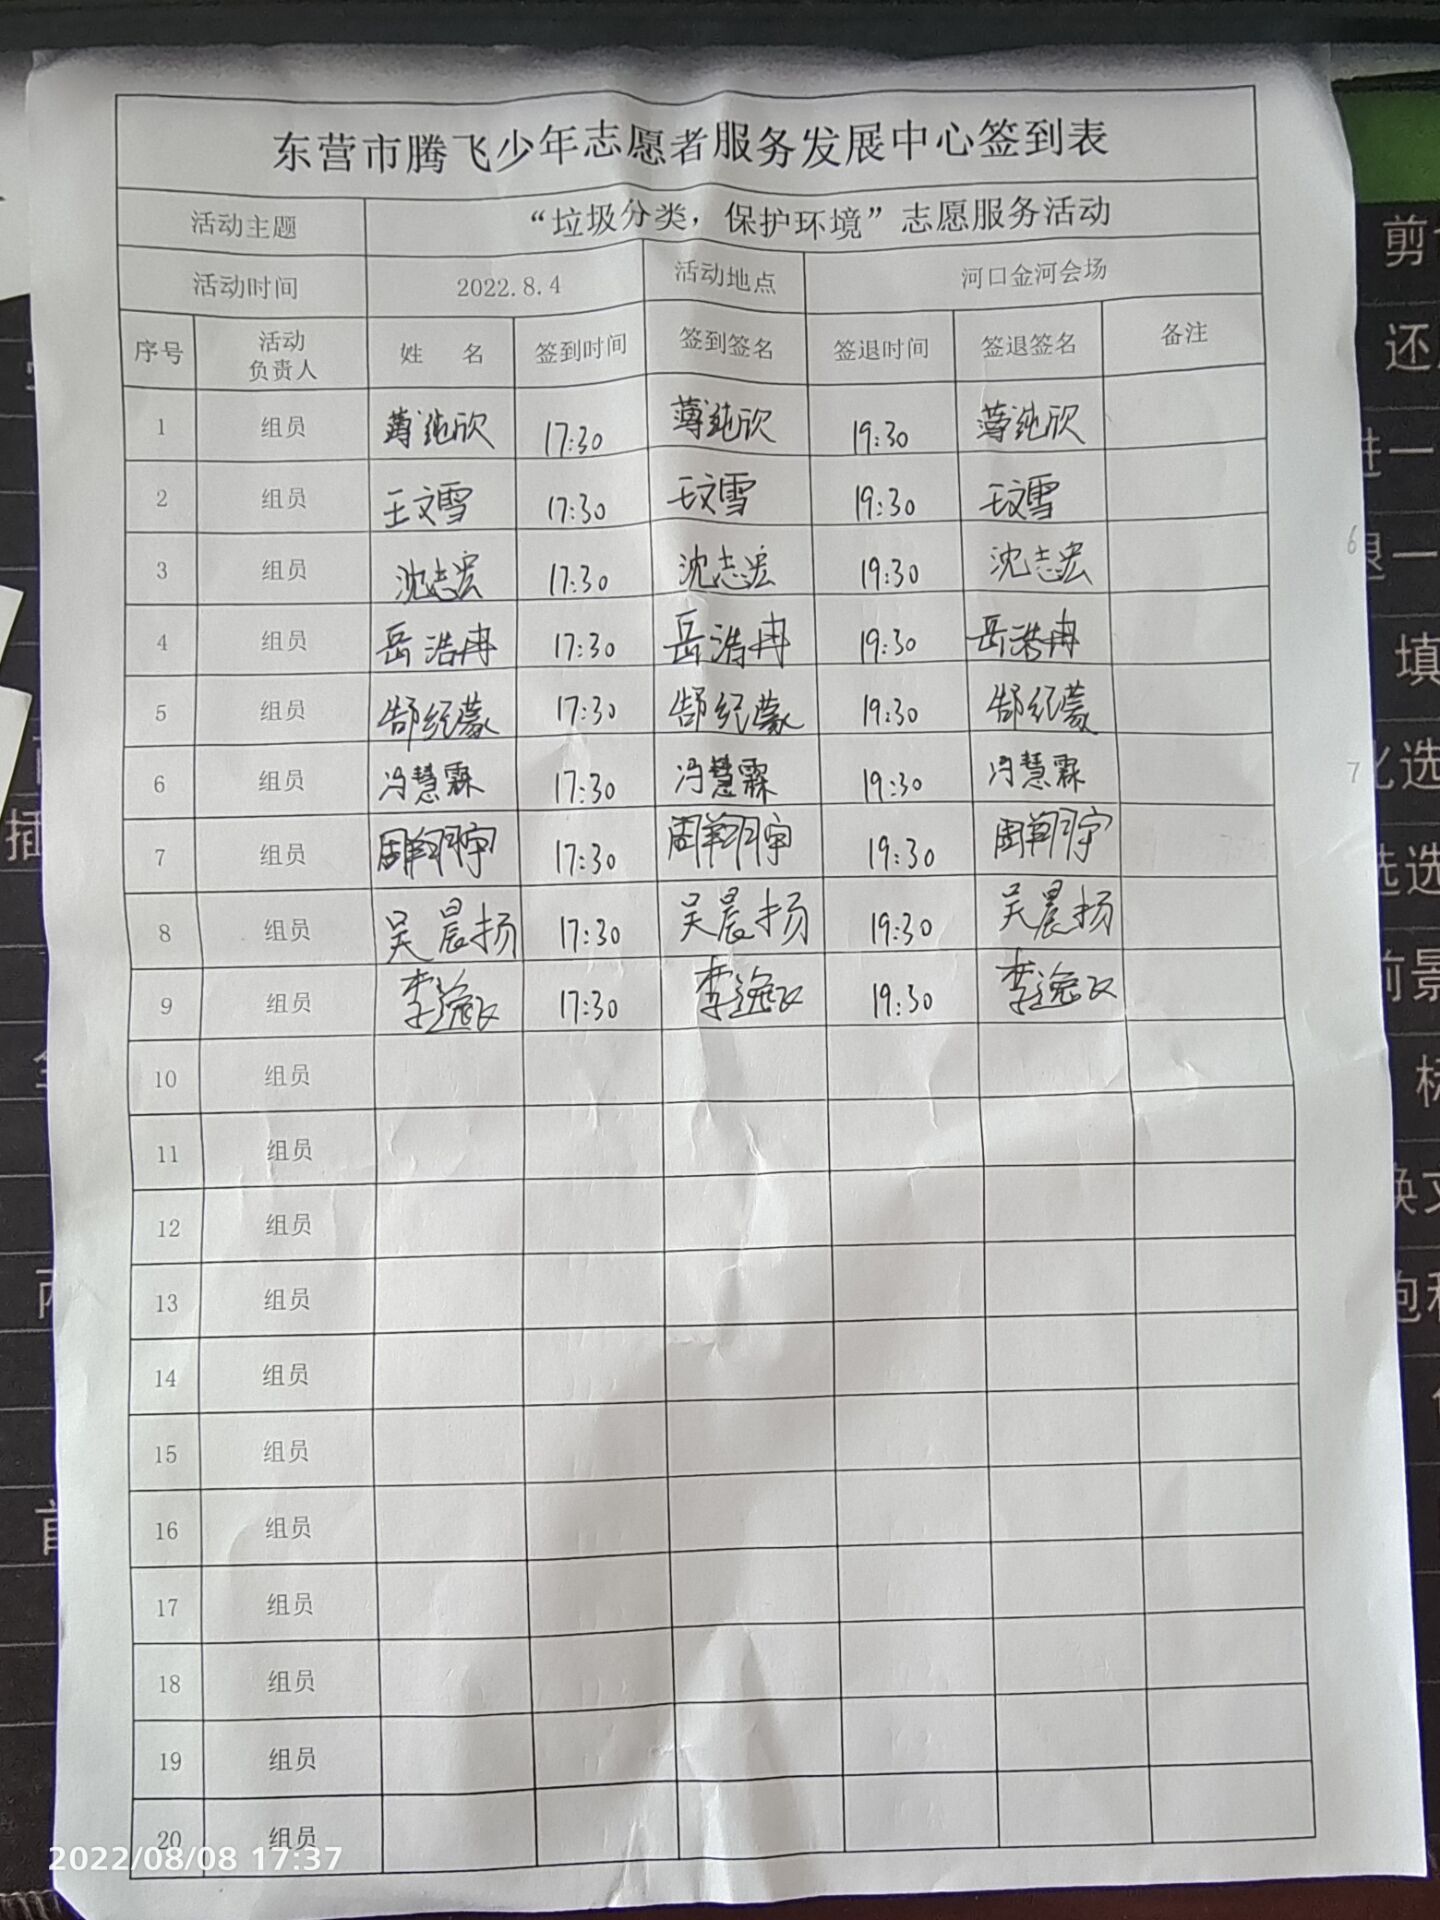 东营市腾飞少年志愿者服务发展中心签到表
活动主题 “垃圾分类，保护环境”志愿服务活动
活动时间 2022.8.4 活动地点 河口金河会场
序号 活动负责人 姓 名 签到时间 签到签名 签退时间 签退签名 备注
1 组员 薄纯欣 17:30 薄纯欣 19:30 薄纯欣
2 组员 王文雪 17:30 王文雪 19:30 王文雪
3 组员 沈志宏 17:30 沈志宏 19:30 沈志宏
4 组员 岳浩冉 17:30 岳浩冉 19:30 岳浩冉
5 组员 郜纪蒙 17:30 郜纪蒙 19:30 郜纪蒙
6 组员 冯慧霖 17:30 冯慧霖 19:30 冯慧霖
7 组员 周翔宇 17:30 周翔宇 19:30 周翔宇
8 组员 吴晨扬 17:30 吴晨扬 19:30 吴晨扬
9 组员 李逸飞 17:30 李逸飞 19:30 李逸飞
10 组员
11 组员
12 组员
13 组员
14 组员
15 组员
16 组员
17 组员
18 组员
19 组员
20 组员
2022/08/08 17:37
剪
还
进一
退一
填
选
选选
前景
换文
饱和
插
6
7